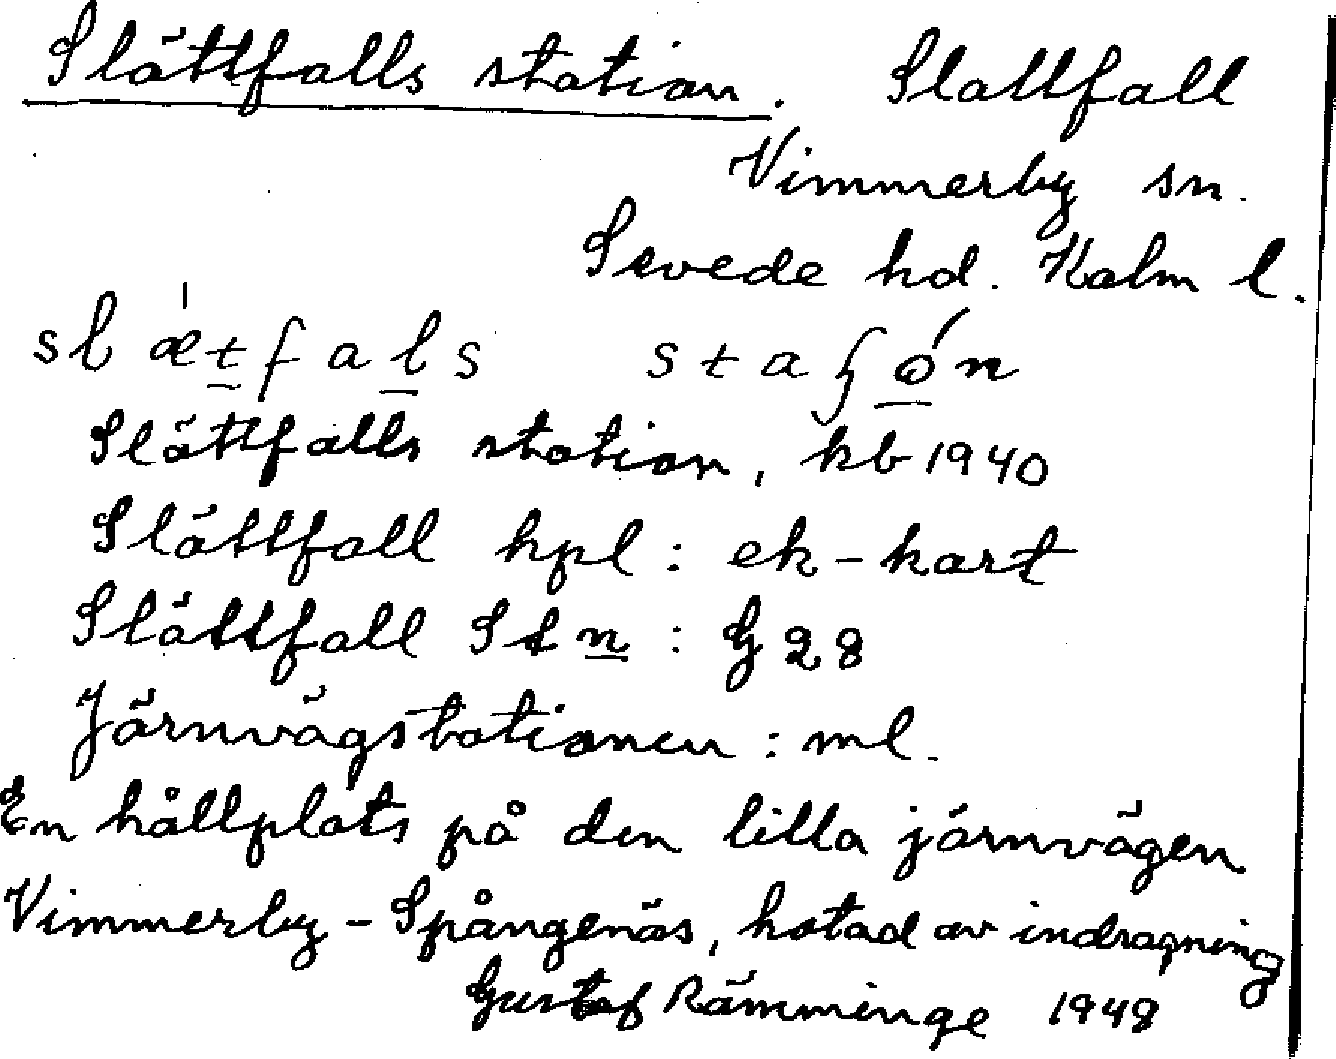 Slättfalls station. Slättfall
Vimmerby sn.
Sevede hd. Kalm l.
slätfals
Slättfalls station, kb 1940
Slättfall hpl: ek-kart
Slättfall Stn: G 28
Järnvägstationen: ml.
En hållplats på den lilla järnvägen
Vimmerby-Spångenäs, hotad av indragning
Gustaf Rämminge 1948